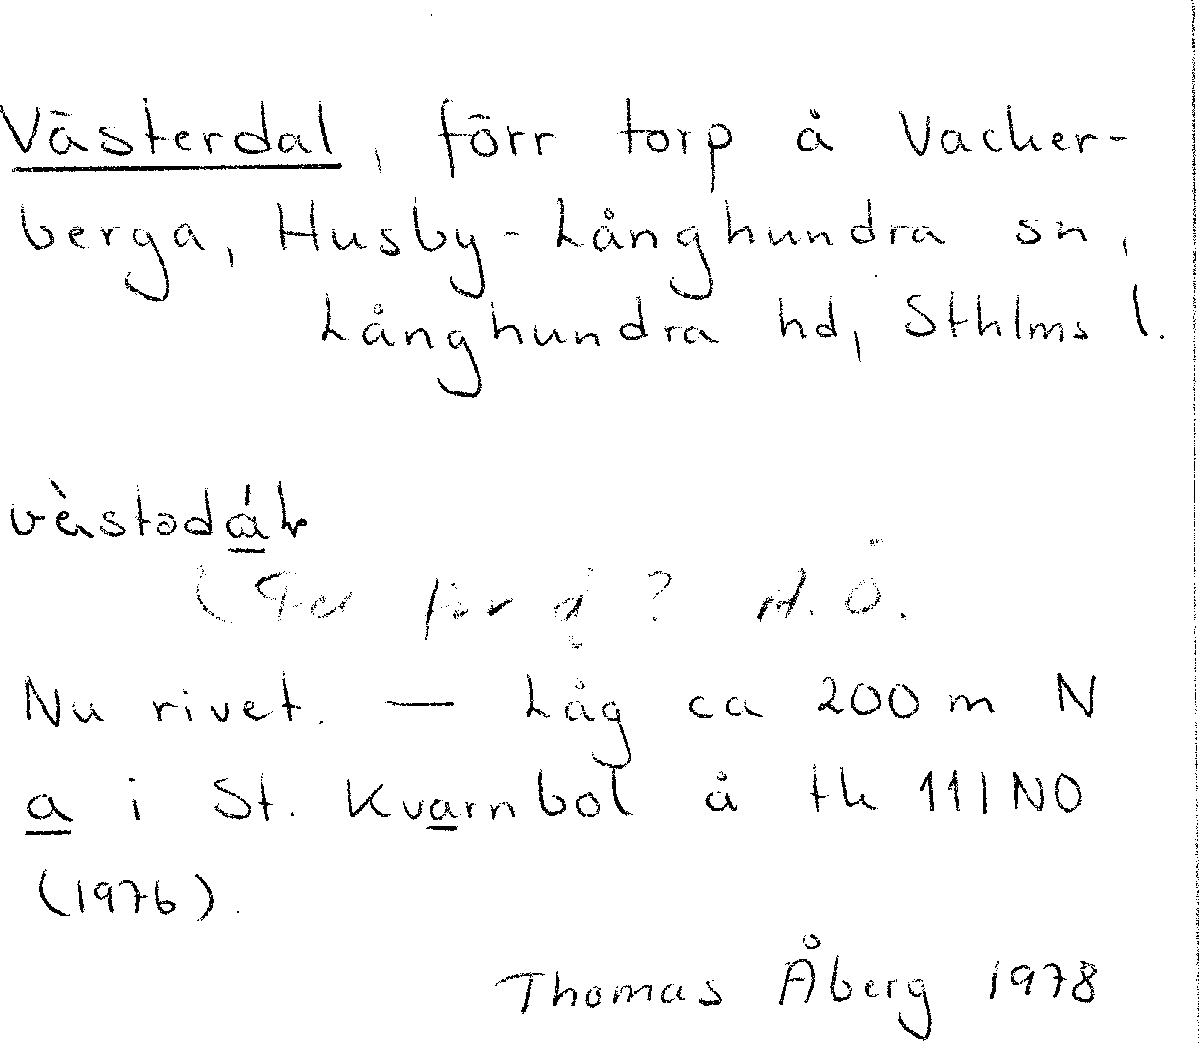 Västerdal, förr torp å Vacker-
berga, Husby-Långhundra sn,
Långhundra hd, Sthlms l.
vὲstədál
(Fel för d? M.Ö.
Nu rivet. — Låg ca 200 m N
a i St. Kvarnbol å tk 11I NO
(1976).
Thomas Åberg 1978